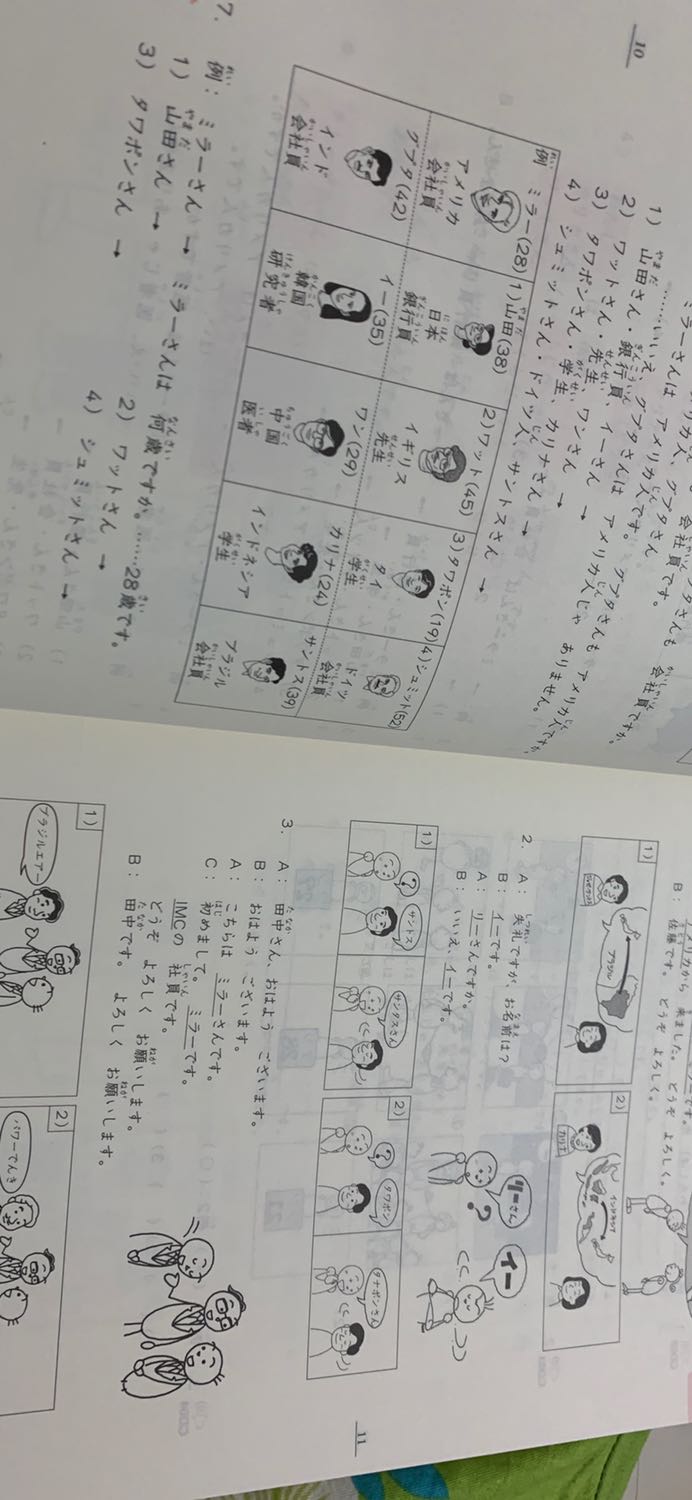 1) 山田さん・銀行員、イーさん →
2) ワットさん・先生、ワンさん →
3) タワポンさん・学生、カリナさん →
4) シュミットさん・ドイツ人、サントスさん →
例 ミラー(28) アメリカ 会社員
1)山田(38) 日本 銀行員
2)ワット(45) イギリス 先生
3)タワポン(19) タイ 学生
4)シュミット(52) ドイツ 会社員
グプタ(42) インド 会社員
イー(35) 韓国 研究者
ワン(29) 中国 医者
カリナ(24) インドネシア 学生
サントス(39) ブラジル 会社員
7. 例: ミラーさん → ミラーさんは 何歳ですか。……28歳です。
1) 山田さん → 2) ワットさん →
3) タワポンさん → 4) シュミットさん →
10
から 来ました。どうぞ よろしく。
B: 佐藤です。どうぞ よろしく。
1) ブラジル
2) インドネシア
カリナ
2. A: 失礼ですが、お名前は?
B: イーです。
A: リーさんですか。
B: いいえ、イーです。
リーさん?
イー
1) ? サントス サンタスさん
2) ? タワポン タナポンさん
3. A: 田中さん、おはよう ございます。
B: おはよう ございます。
A: こちらは ミラーさんです。
C: 初めまして。ミラーです。
IMCの 社員です。
どうぞ よろしく お願いします。
B: 田中です。よろしく お願いします。
1) ブラジルエアー
2) パワーでんき
11